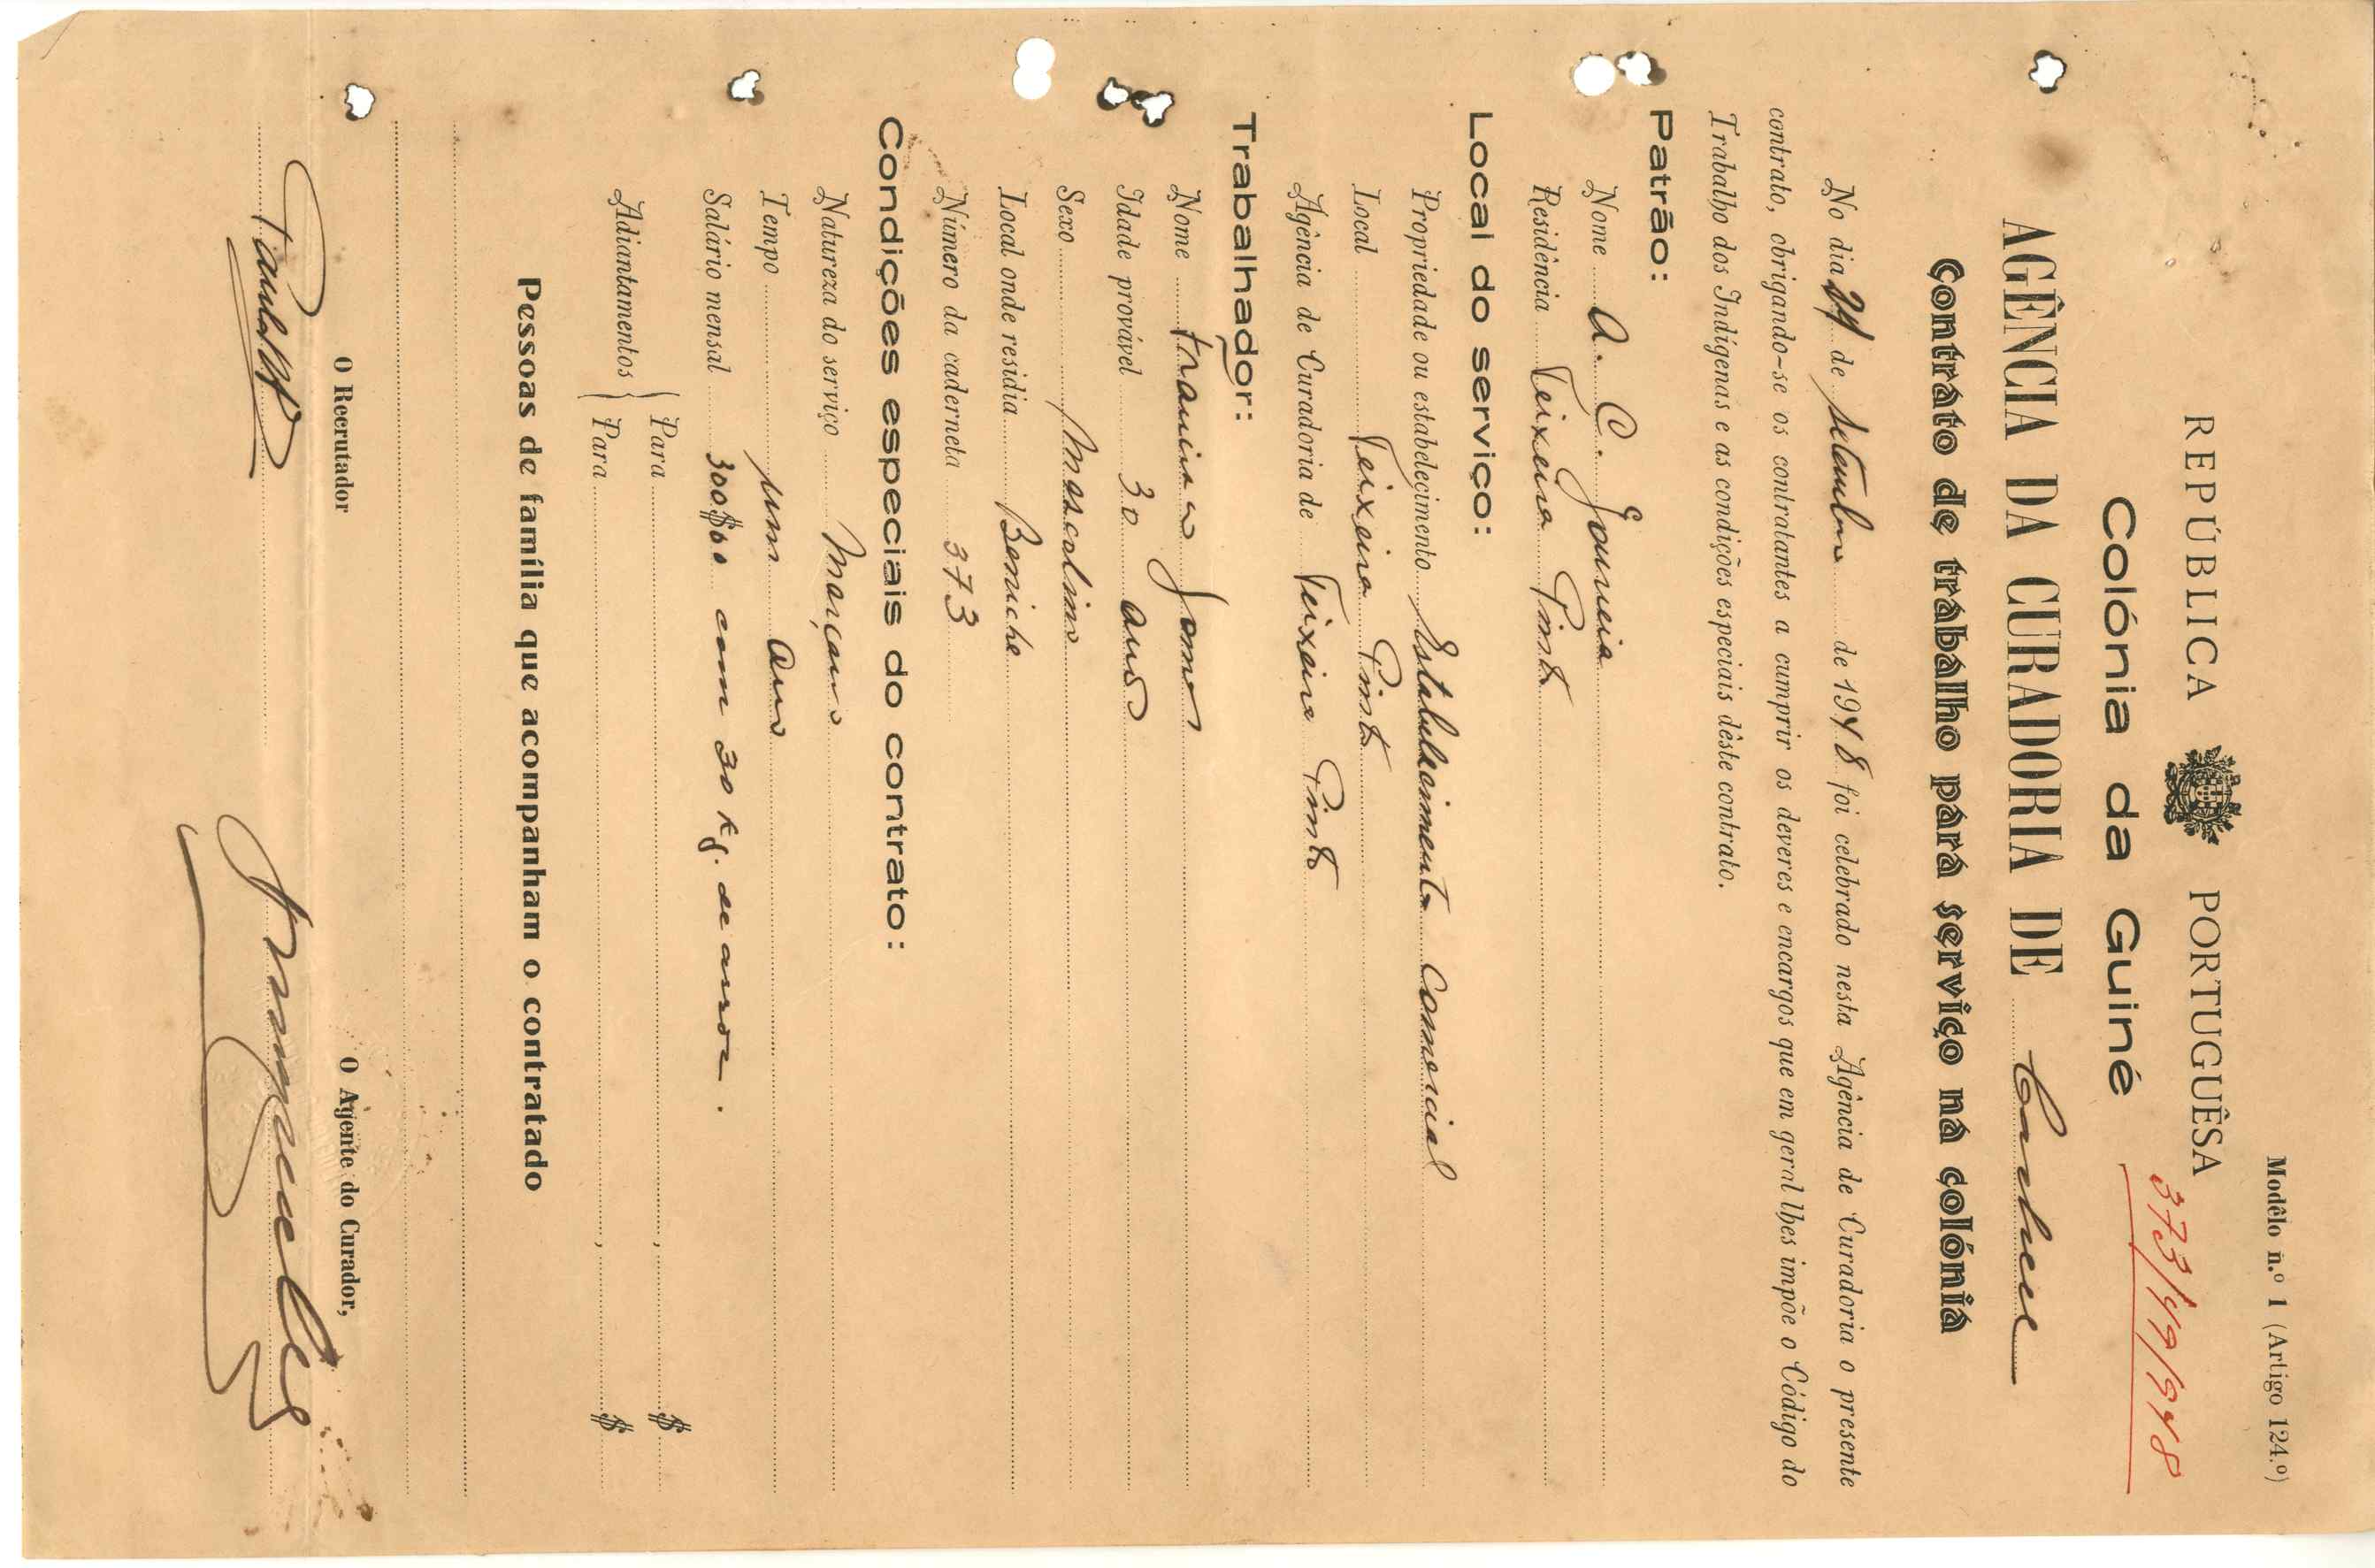 Modêlo n.º 1 (Artigo 124.º)
REPÚBLICA PORTUGUÊSA
373/49/948
Colónia da Guiné
AGÊNCIA DA CURADORIA DE Cacheu
Contrato de trabalho para serviço na colónia
No dia 21 de Setembro de 1948 foi celebrado nesta Agência de Curadoria o presente
contrato, obrigando-se os contratantes a cumprir os deveres e encargos que em geral lhes impõe o Código do
Trabalho dos Indígenas e as condições especiais dêste contrato.
Patrão:
Nome A. C. Gouveia
Residência Teixeira Pinto
Local do serviço:
Propriedade ou estabelecimento Estabelecimento Comercial
Local Teixeira Pinto
Agência de Curadoria de Teixeira Pinto
Trabalhador:
Nome Francisco Gomes
Idade provável 30 anos
Sexo Masculino
Local onde residia Beniche
Número da caderneta 373
Condições especiais do contrato:
Natureza do serviço Marçano
Tempo um ano
Salário mensal 300$00 com 30 kg. de arroz.
Adiantamentos { Para , $
Para , $
Pessoas de família que acompanham o contratado
O Recrutador O Agente do Curador,